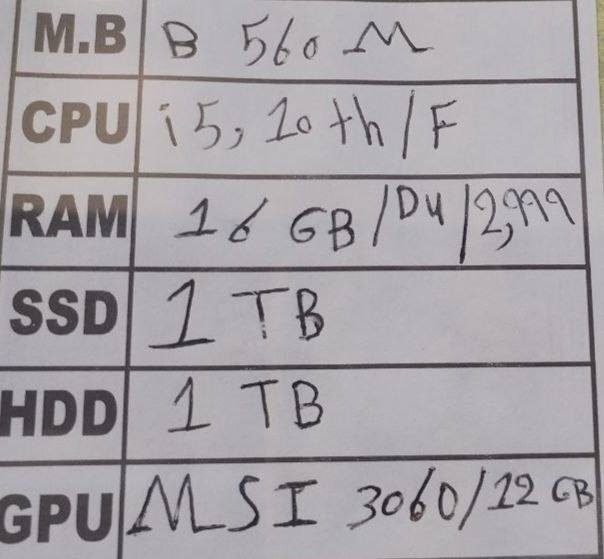 M.B B 560 M
CPU i5, 10th/F
RAM 16 GB/D4/2,999
SSD 1 TB
HDD 1 TB
GPU MSI 3060/12 GB